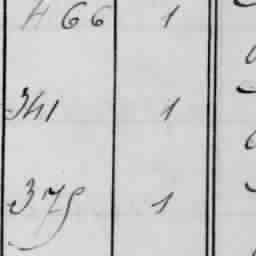 466 1
341 1
375 1